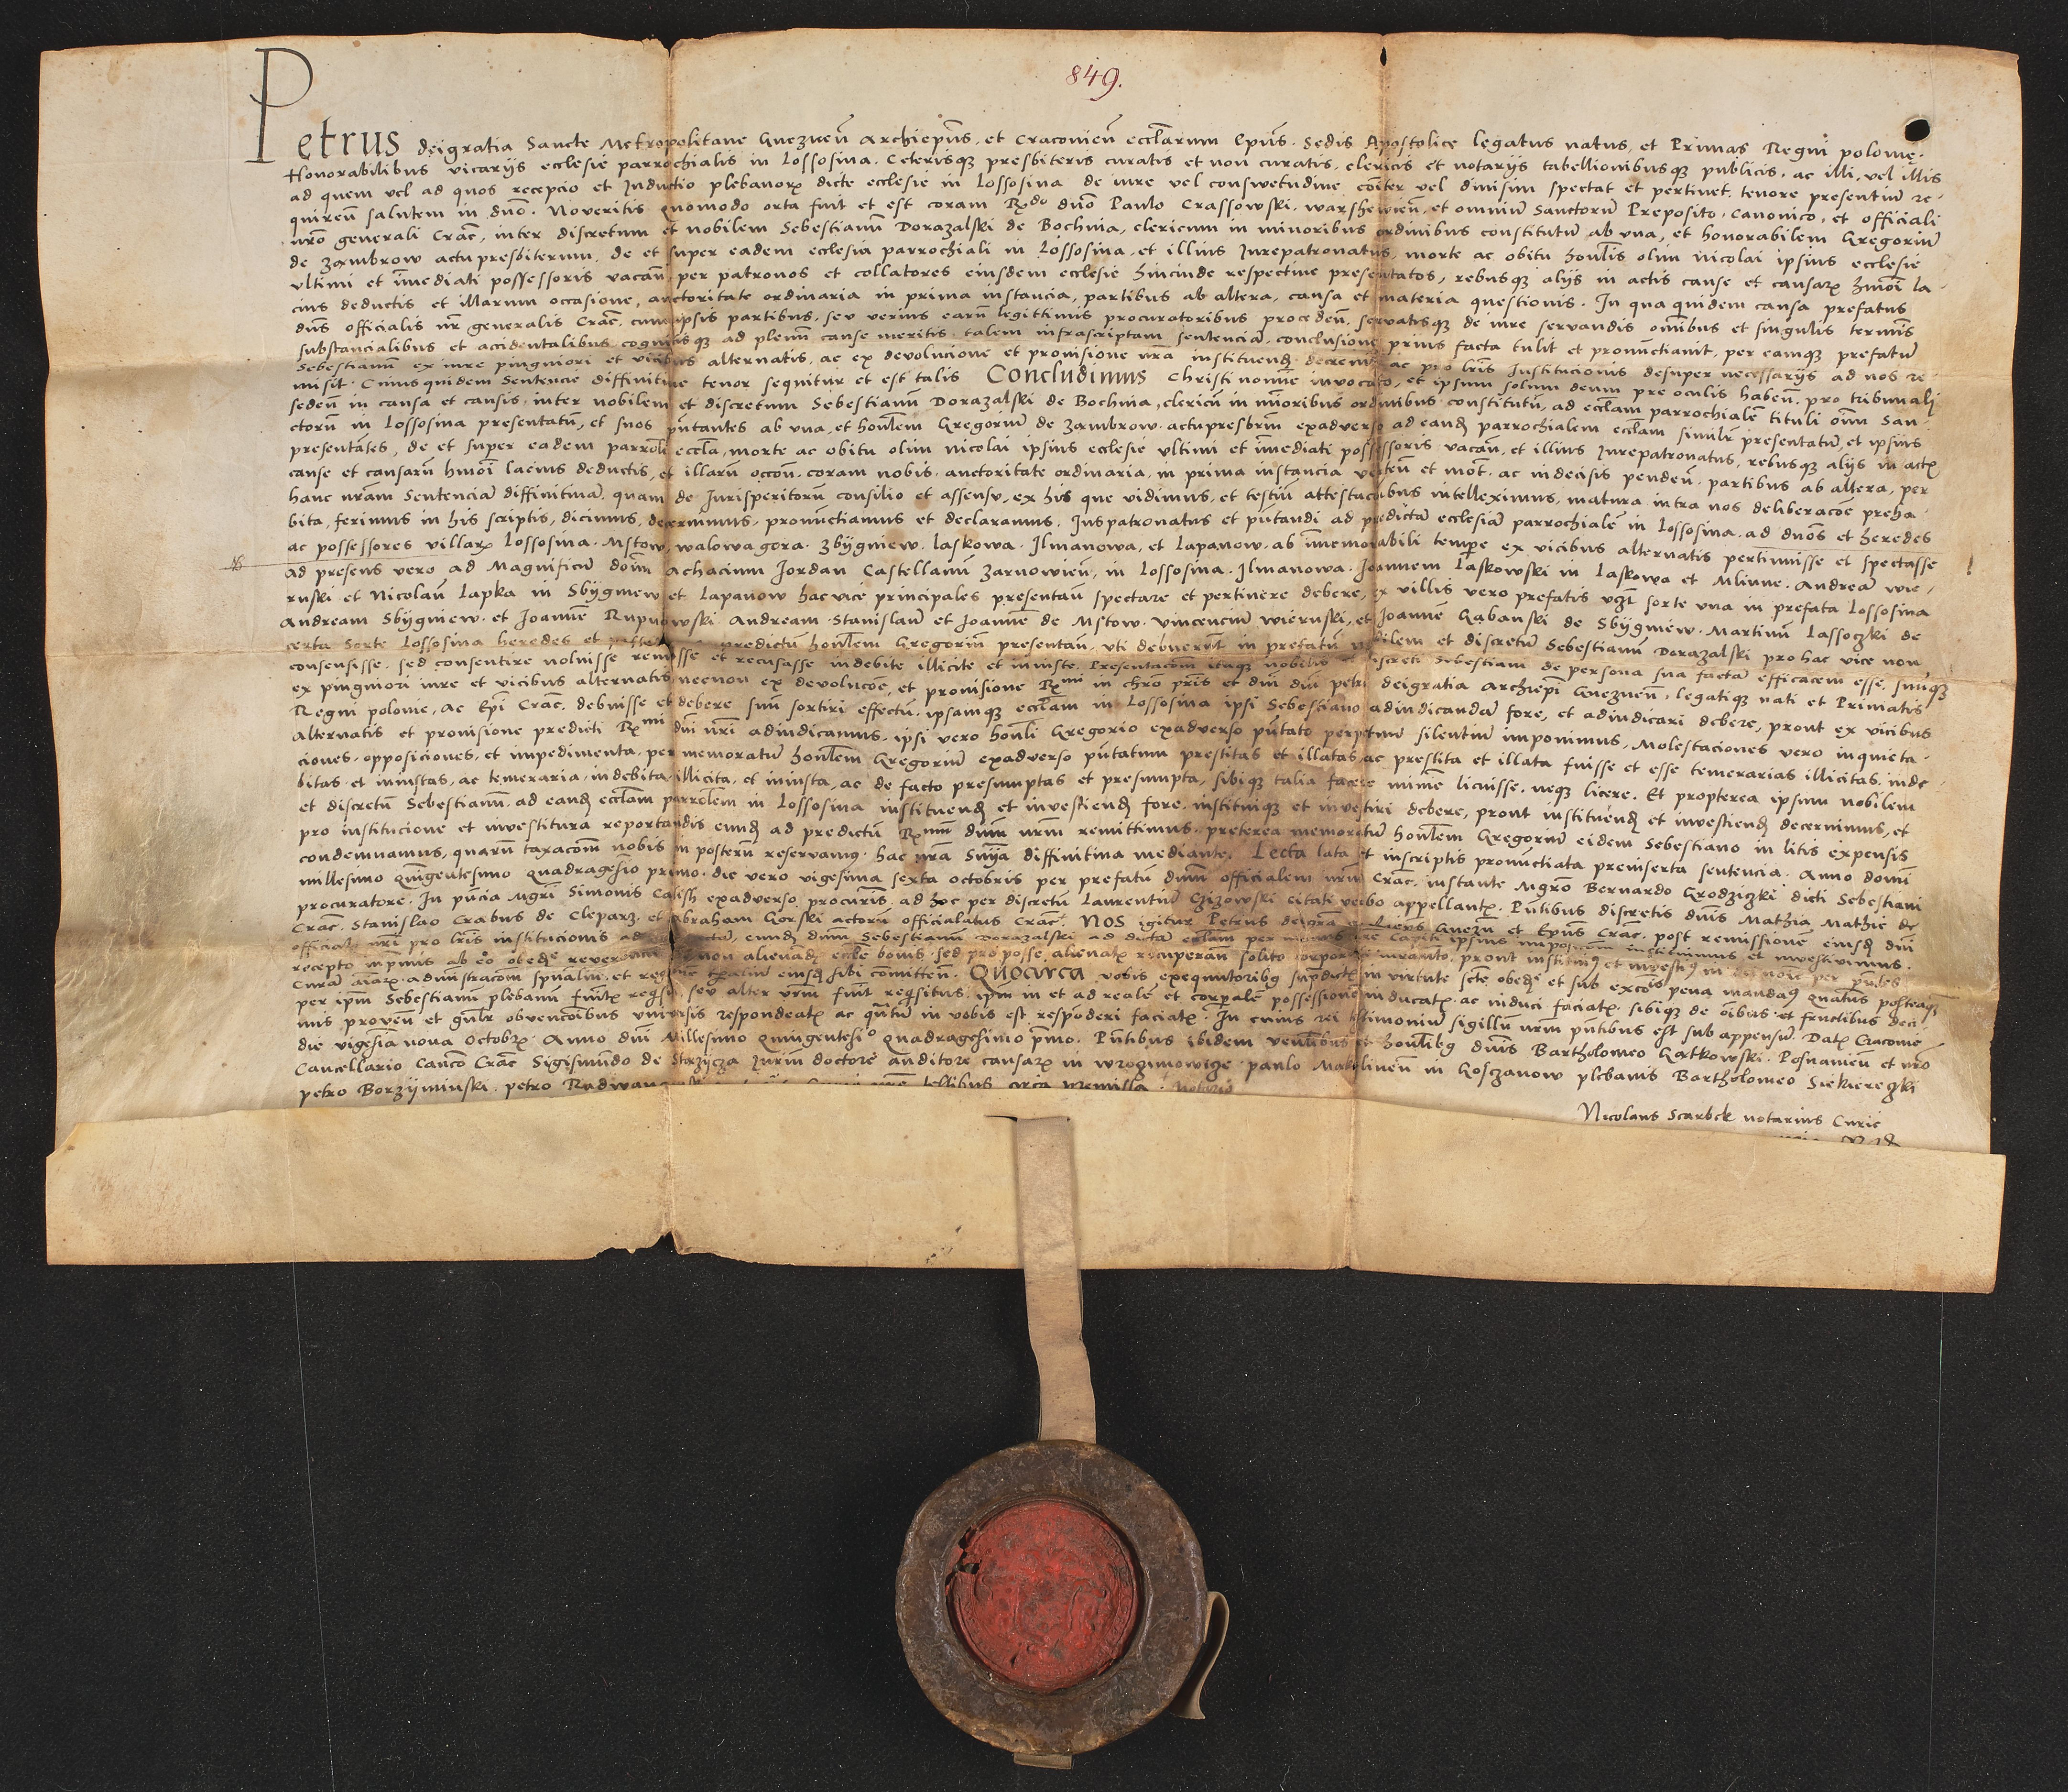 849.
Petrus deigratia Sancte Metropolitane Gneznen̄ Archiepūs, et Craconien̄ eccl̄arum Ep̄us. Sedis Apostolice legatus natus, et Primas Regni polonię.
Honorabilibus vicarijs ecclesie parrochialis in Lossosina. Ceterisq̧ presbiteris curatis et non curatis, clericis et notarijs tabellionibusq̧ publicis, ac illi, vel illis
ad quem vel ad quos recepcio et Inductio plebanorꝝ dicte ecclesie in Lossosina de iure vel conswetudine, cōiter vel divisim spectat et pertinet, tenore presentiū re-
quiren̄ salutem in dn̄o. Noveritis quomodo orta fuit et est coram Rᵈᵒ dn̄o Paulo Crassowski. warshewien̄, et omniū Sanctorū Preposito. Canonico, et officiali
nr̄o generali Crac̄, inter discretum et nobilem Sebestianū Dorazalski de Bochnia, clericum in minoribus ordinibus constitutū ab vna, et honorabilem Gregoriū
de Zambrow actu presbiterum, de et super eadem ecclesia parrochiali in Lossosina, et illius Iurepatronatus, morte ac obitu hon̄lis olim Nicolai ipsius ecclesie
vltimi et īmediati possessoris vacan̄ per patronos et collatores eiusdem ecclesie hincinde respective presentatos, rebusq̧ alijs in actis cause et causarꝝ hmōi la-
cius deductis et illarum occasione, auctoritate ordinaria in prima instancia, partibus ab altera, causa et materia questionis. In qua quidem causa prefatus
dn̄s officialis nr̄ generalis Crac̄, cum ipsis partibus, seu verius earū legittimis procuratoribus proceden̄, servatisq̧ de iure servandis om̄ibus et singulis termīs
substancialibus et accidentalibus cognitisq̧ ad plenū cause meritis, talem infrascriptam sentenciā, conclusione prius facta tulit et pronūctiavit, per eamq̧ prefatū
Sebestianū ex iure pinguiori et vicibus alternatis, ac ex devolucione et provisione nr̄a instituendꝫ decrevit ac pro lr̄is Institucionis desuper necessarijs ad nos re-
misit. Cuius quidem Sentencie diffinitive tenor sequitur et est talis Concludimus Christi nomīe invocato, et ipsum solum deum pre oculis haben̄. pro tribunali
seden̄ in causa et causis, inter nobilem et discretum Sebestianū Dorazalski de Bochnia, clericū in mīoribus ordinibus constitutū, ad eccl̄am parrochialē tituli om̄i San-
ctorū in Lossosina presentatū, et suos pn̄tantes ab vna, et hon̄lem Gregoriū de Zambrow. actu presbr̄m exadverso ad eandꝫ parrochialem eccl̄am simil̄r presentatū, et ipsius
presentātes, de et super eadem parroch̄ eccl̄a, morte ac obitu olim Nicolai ipsius ecclesie vltimi et īmediati possessoris vacan̄, et illius Iurepatronatus, rebusq̧ alijs in actꝭ
cause et causarū hmōi lacius deductis, et illarū occōn̄. coram nobis. auctoritate ordinaria, in prima instancia verten̄ et mot̄. ac indecisis penden̄. partibus ab altera, per
hanc nr̄am Sentenciā diffinitivā, quam de Iurisperitorū consilio et assensu, ex his que vidimus, et testiū attestacōibus intelleximus, matura intra nos deliberacōe preha-
bita, ferimus in his scriptis, dicimus, decernimus, pronūctiamus et declaramus. Iuspatronatus et pn̄tandi ad predictā ecclesiā parrochialē in Lossosina, ad dn̄os et heredes
ac possessores villarꝝ Lossosina. Mstow, walowagora. Zbÿgniew. laskowa. Ilmanowa, et Lapanow. ab īmemorabili tempore ex vicibus alternatis pertinuisse et spectasse
ad presens vero ad Magnificū dōm Achacium Jordan Castellanū Zarnowien̄, in Lossosina. Ilmanowa. Joannem Laskowski in Laskowa et Mlinne. Andreā wie-
ruski et Nicolaū Lapka in Sbÿgniew et Lapanow hac vice principales presentan̄ spectare et pertinere debere, ex villis vero prefatis vꝫt sorte vna in prefata Lossosina
Andream Sbÿgniew. et Joannē Rupnowski. Andream. Stanislaū et Joannē de Mstow. Vincenciū wieruski, et Joannē Gąbanski de Sbÿgniew. Martinū Lassoczki de
certa Sorte Lossosina heredes et predictū hon̄lem Gregoriū presentan̄. vti debuerūt in prefatū nobilem et discretū Sebestianū Dorazalski pro hac vice non
consensisse. sed consentire noluisse renuisse et recusasse indebite illicite et iniuste. Presentacōem itaq̧ nobilis et discreti Sebestiani de persona sua factā efficacem esse, suūq̧
ex pinguiori iure et vicibus alternatis necnon ex devolucōe, et provisione Rᵐⁱ in chr̄o pr̄is et dn̄i dn̄i petri deigratia Archiep̄i Gneznen̄. legatiq̧ nati et Primatis
Regni polonie, ac Ep̄i Crac̄. debuisse et debere suū sortiri effectū. ipsamq̧ eccl̄am in Lossosina ipsi Sebestiano adiudicandā fore, et adiudicari debere, prout ex vicibus
alternatis et provisione prediti Rᵐⁱ dn̄i nr̄i adiudicamus. ipsi vero hon̄li Gregorio exadverso pn̄tato perpetuū silentiū imponimus. Molestaciones vero inquieta-
ciones. opposiciones, et impedimenta. per memoratū hon̄lem Gregoriū exadverso pn̄tatum prestitas et illatas, ac prestita et illata fuisse et esse temerarias illicitas. inde-
bitas. et iniustas, ac temeraria. indebita, illicita, et iniusta, ac de facto presumptas et presumpta, sibiq̧ talia facere mīme licuisse, neq̧ licere. Et propterea ipsum nobilem
et discretū Sebestianū. ad eandꝫ eccl̄am parroch̄lem in Lossosina instituendꝫ et investiendꝫ fore. instituiq̧ et investiri debere, prout instituēdꝫ et investiendꝫ decernimus, et
pro institucione et investitura reportandis eundꝫ ad predictū Rᵐᵘᵐ dn̄m nr̄m remittimus. preterea memoratū hon̄lem Gregoriū eidem Sebestiano in litis expensis
condemnamus, quarū taxacōm nobis in posterū reservamꝰ. hac nr̄a Sn̄ia diffinitiva mediante. Lecta lata et inscriptis pronūctiata preinserta sentencia. Anno domī
millesimo quīgentesimo quadragesīo primo. die vero vigesima sexta octobris per prefatū dn̄m officialem nr̄m Crac̄. instante Mgr̄o Bernardo Grodziczki dicti Sebestiani
procuratore. In pn̄cia Mgr̄i Simonis Calissh exadverso procur̄is. ad hoc per discretū Laurentiū Czizowski citati verbo appellantꝭ. Pn̄tibus discretis dn̄is Mathia Mathie de
Crac̄. Stanislao Crabus de Cleparz. et Abraham Gorski actorū officialatus Crac̄. NOS igitur Petrus deigr̄a Archiep̄us Gnezn̄ et Ep̄us Crac̄. post remissionē eiusdꝫ dn̄i
officialis nr̄i pro lr̄is institucionis ad eundꝫ dn̄m Sebestianū Dorazalski ad dictā eccl̄am per Capiti ipsius et investivimus.
recepto inpīmis ab eo obedꝫe reverencia non alienādꝭ eccl̄e bonis. sed pro posse, alienatꝭ recuperan̄ solito corporali iuramēto, prout institimꝰ et investimꝰ in dei noīe per pn̄tes.
Curā aīarꝝ. adm̄stracōm spūaliū. et regimē tꝑaliū eiusdꝫ sibi comitten̄. Quocirca vobis exequutoribꝰ supradictꝭ in virtute scte obedꝫ et sub excōis pena mandamꝰ quatenꝰ posteaq̧
per ipm̄ Sebestianū plebanū fuītꝭ reqsiti. seu alter vr̄m fuīt reqsitus. ipm̄ in et ad realē et corꝑalē possessionē inducatꝭ. ac induci faciatꝭ. sibiq̧ de oībus. et fructibus deci-
mis proven̄ et gn̄lr obvencōibus universis respondeatꝭ ac qn̄tū in vobis est respōderi faciatꝭ. In cuius rei testimoniū sigillū nr̄m pn̄tibus est subappensū. Datꝭ Cracovie
die vigesīa nona Octobrꝭ. Anno dn̄i Millesimo quingentesiᵒ quadragesimo prīmo. Pn̄tibus ibidem ven̄libus et hon̄libꝰ dn̄is Bartholomeo Gątkowski. Posnanien̄ et nr̄o
Cancellario Cancō Crac̄ Sigismūdo de Stązÿcza Iuriū doctore auditore causarꝝ in wrozimowice. paulo in Gosczanow plebanis Bartholomeo Siekiereczki
petro Borzÿminski. petro Radwan testibus circa premissa. notario
Nicolaus Scarbek notarius Curie